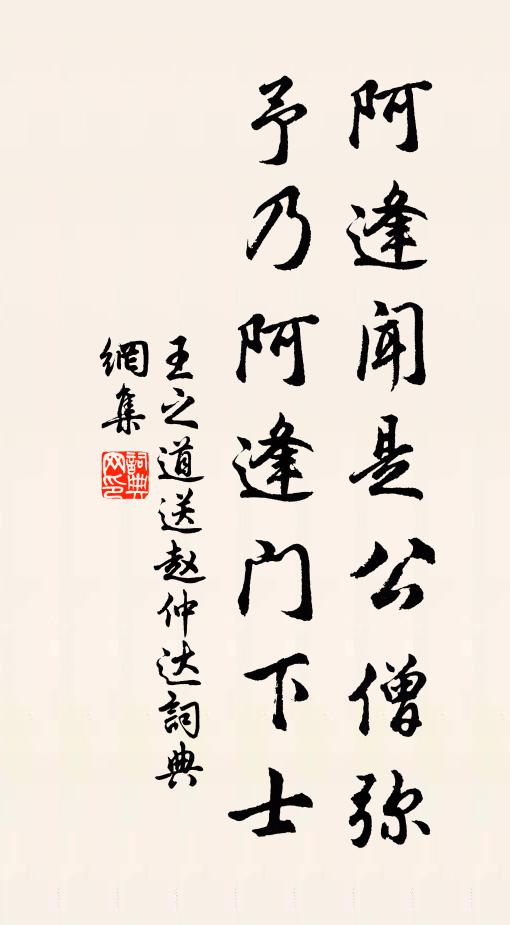 阿逢闻是公僧弥
予乃阿逢门下士
王之道送赵仲达詞典
網集
詞典網印